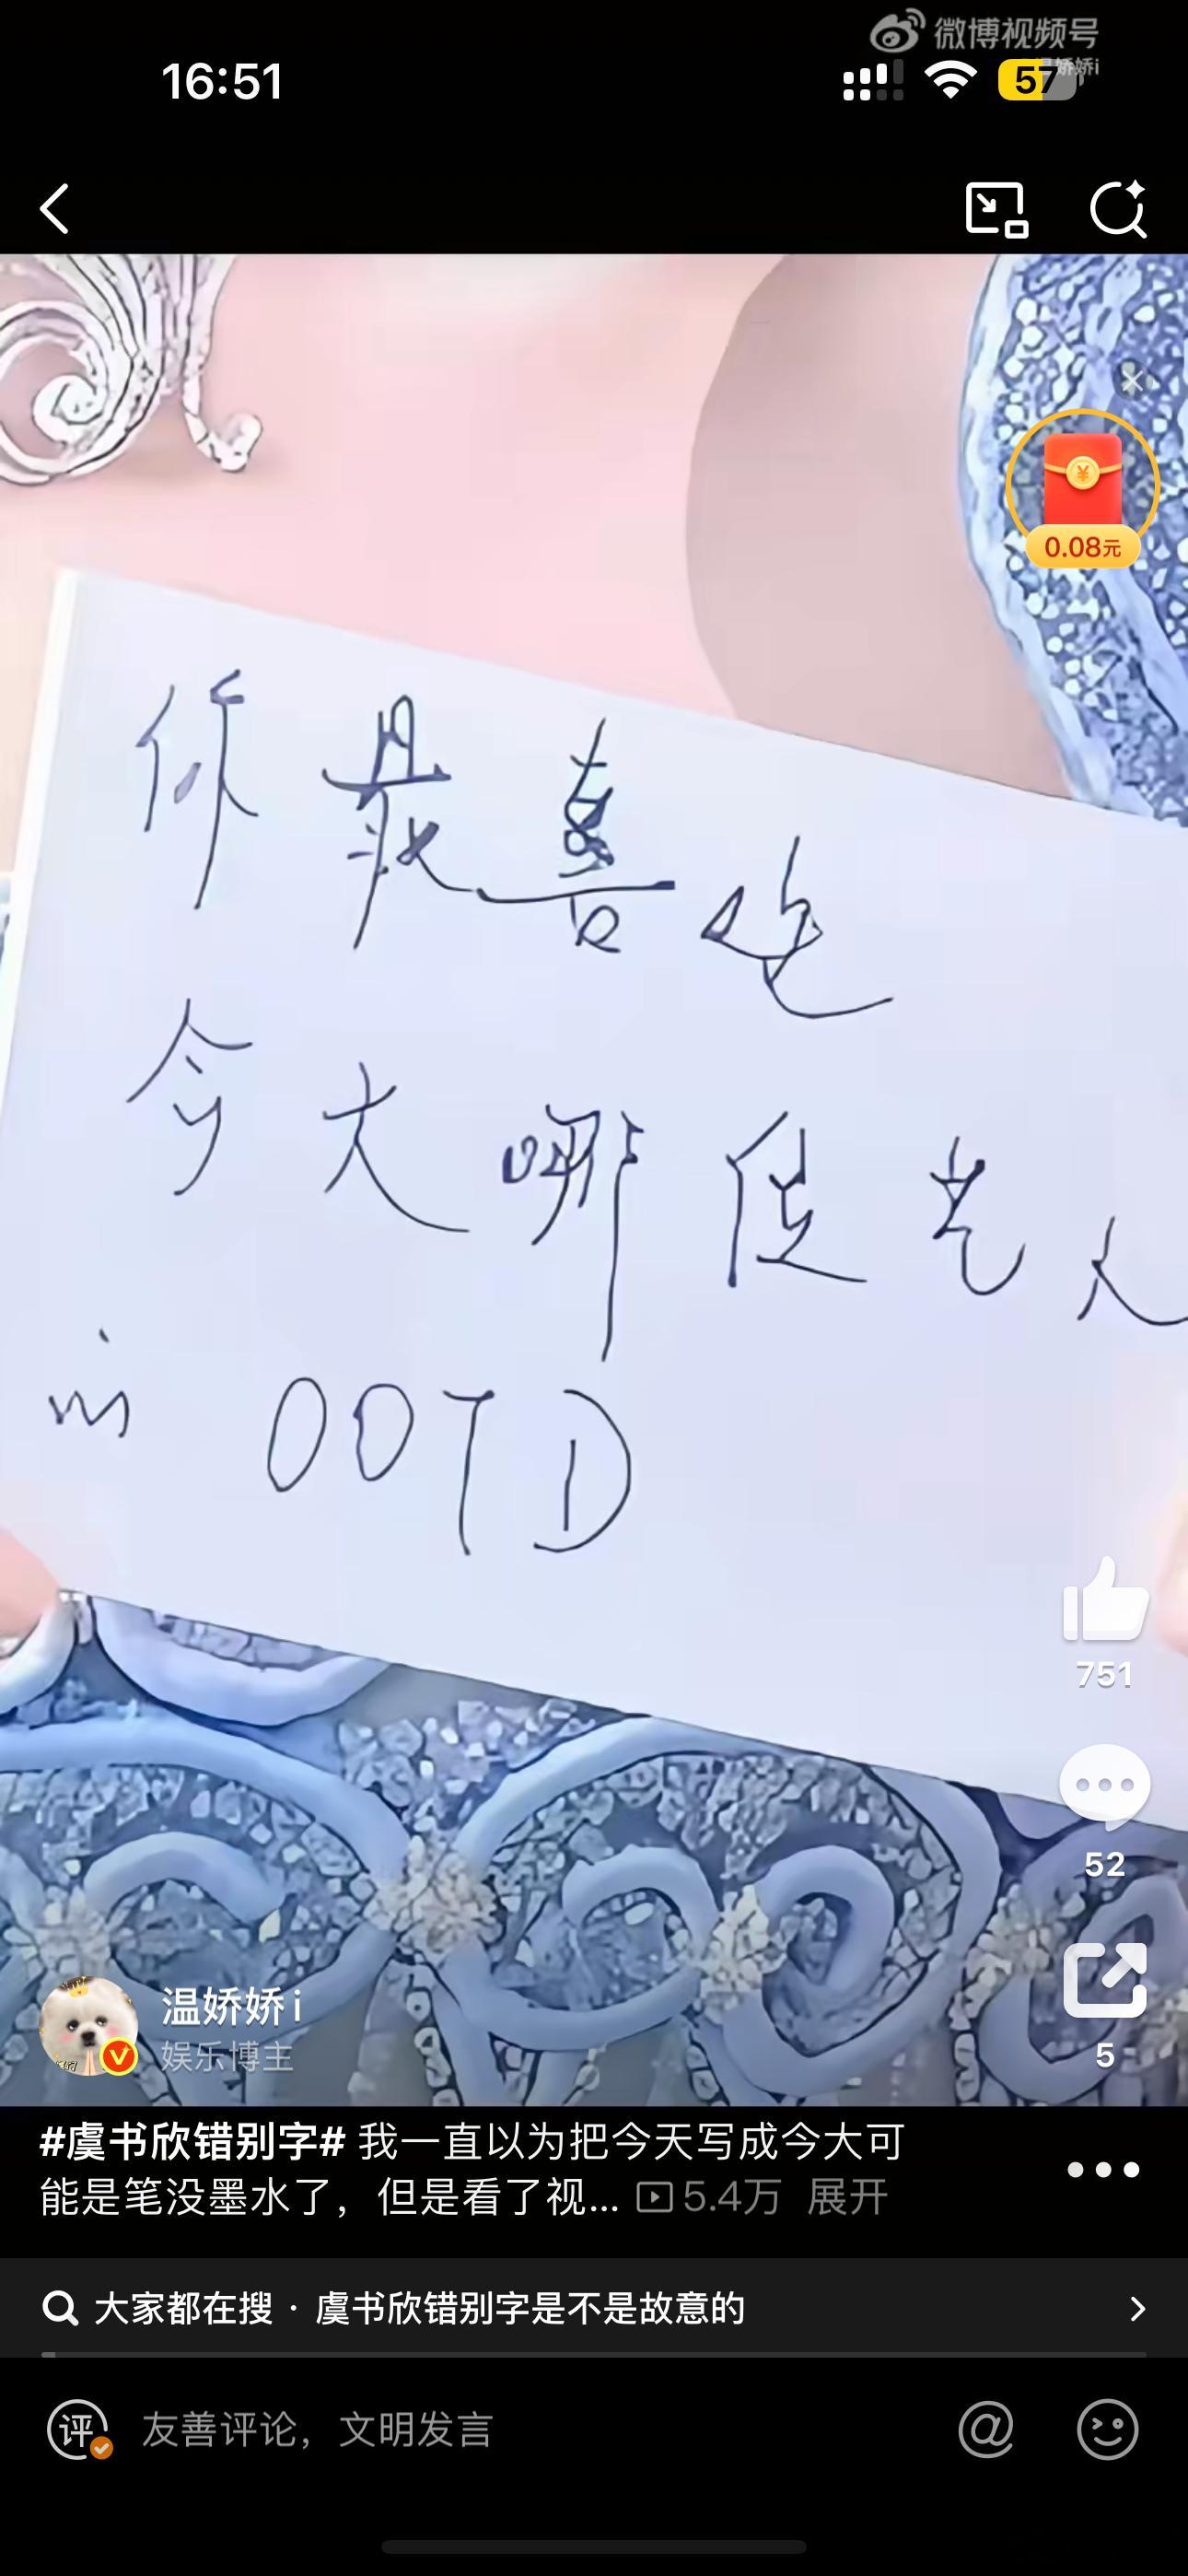 微博视频号
16:51
57
温娇娇i
0.08元
你最喜吃
今大哪位老人
的 OOTD
751
52
5
温娇娇i
娱乐博主
#虞书欣错别字# 我一直以为把今天写成今大可
能是笔没墨水了，但是看了视... 5.4万 展开
大家都在搜 · 虞书欣错别字是不是故意的
评 友善评论，文明发言